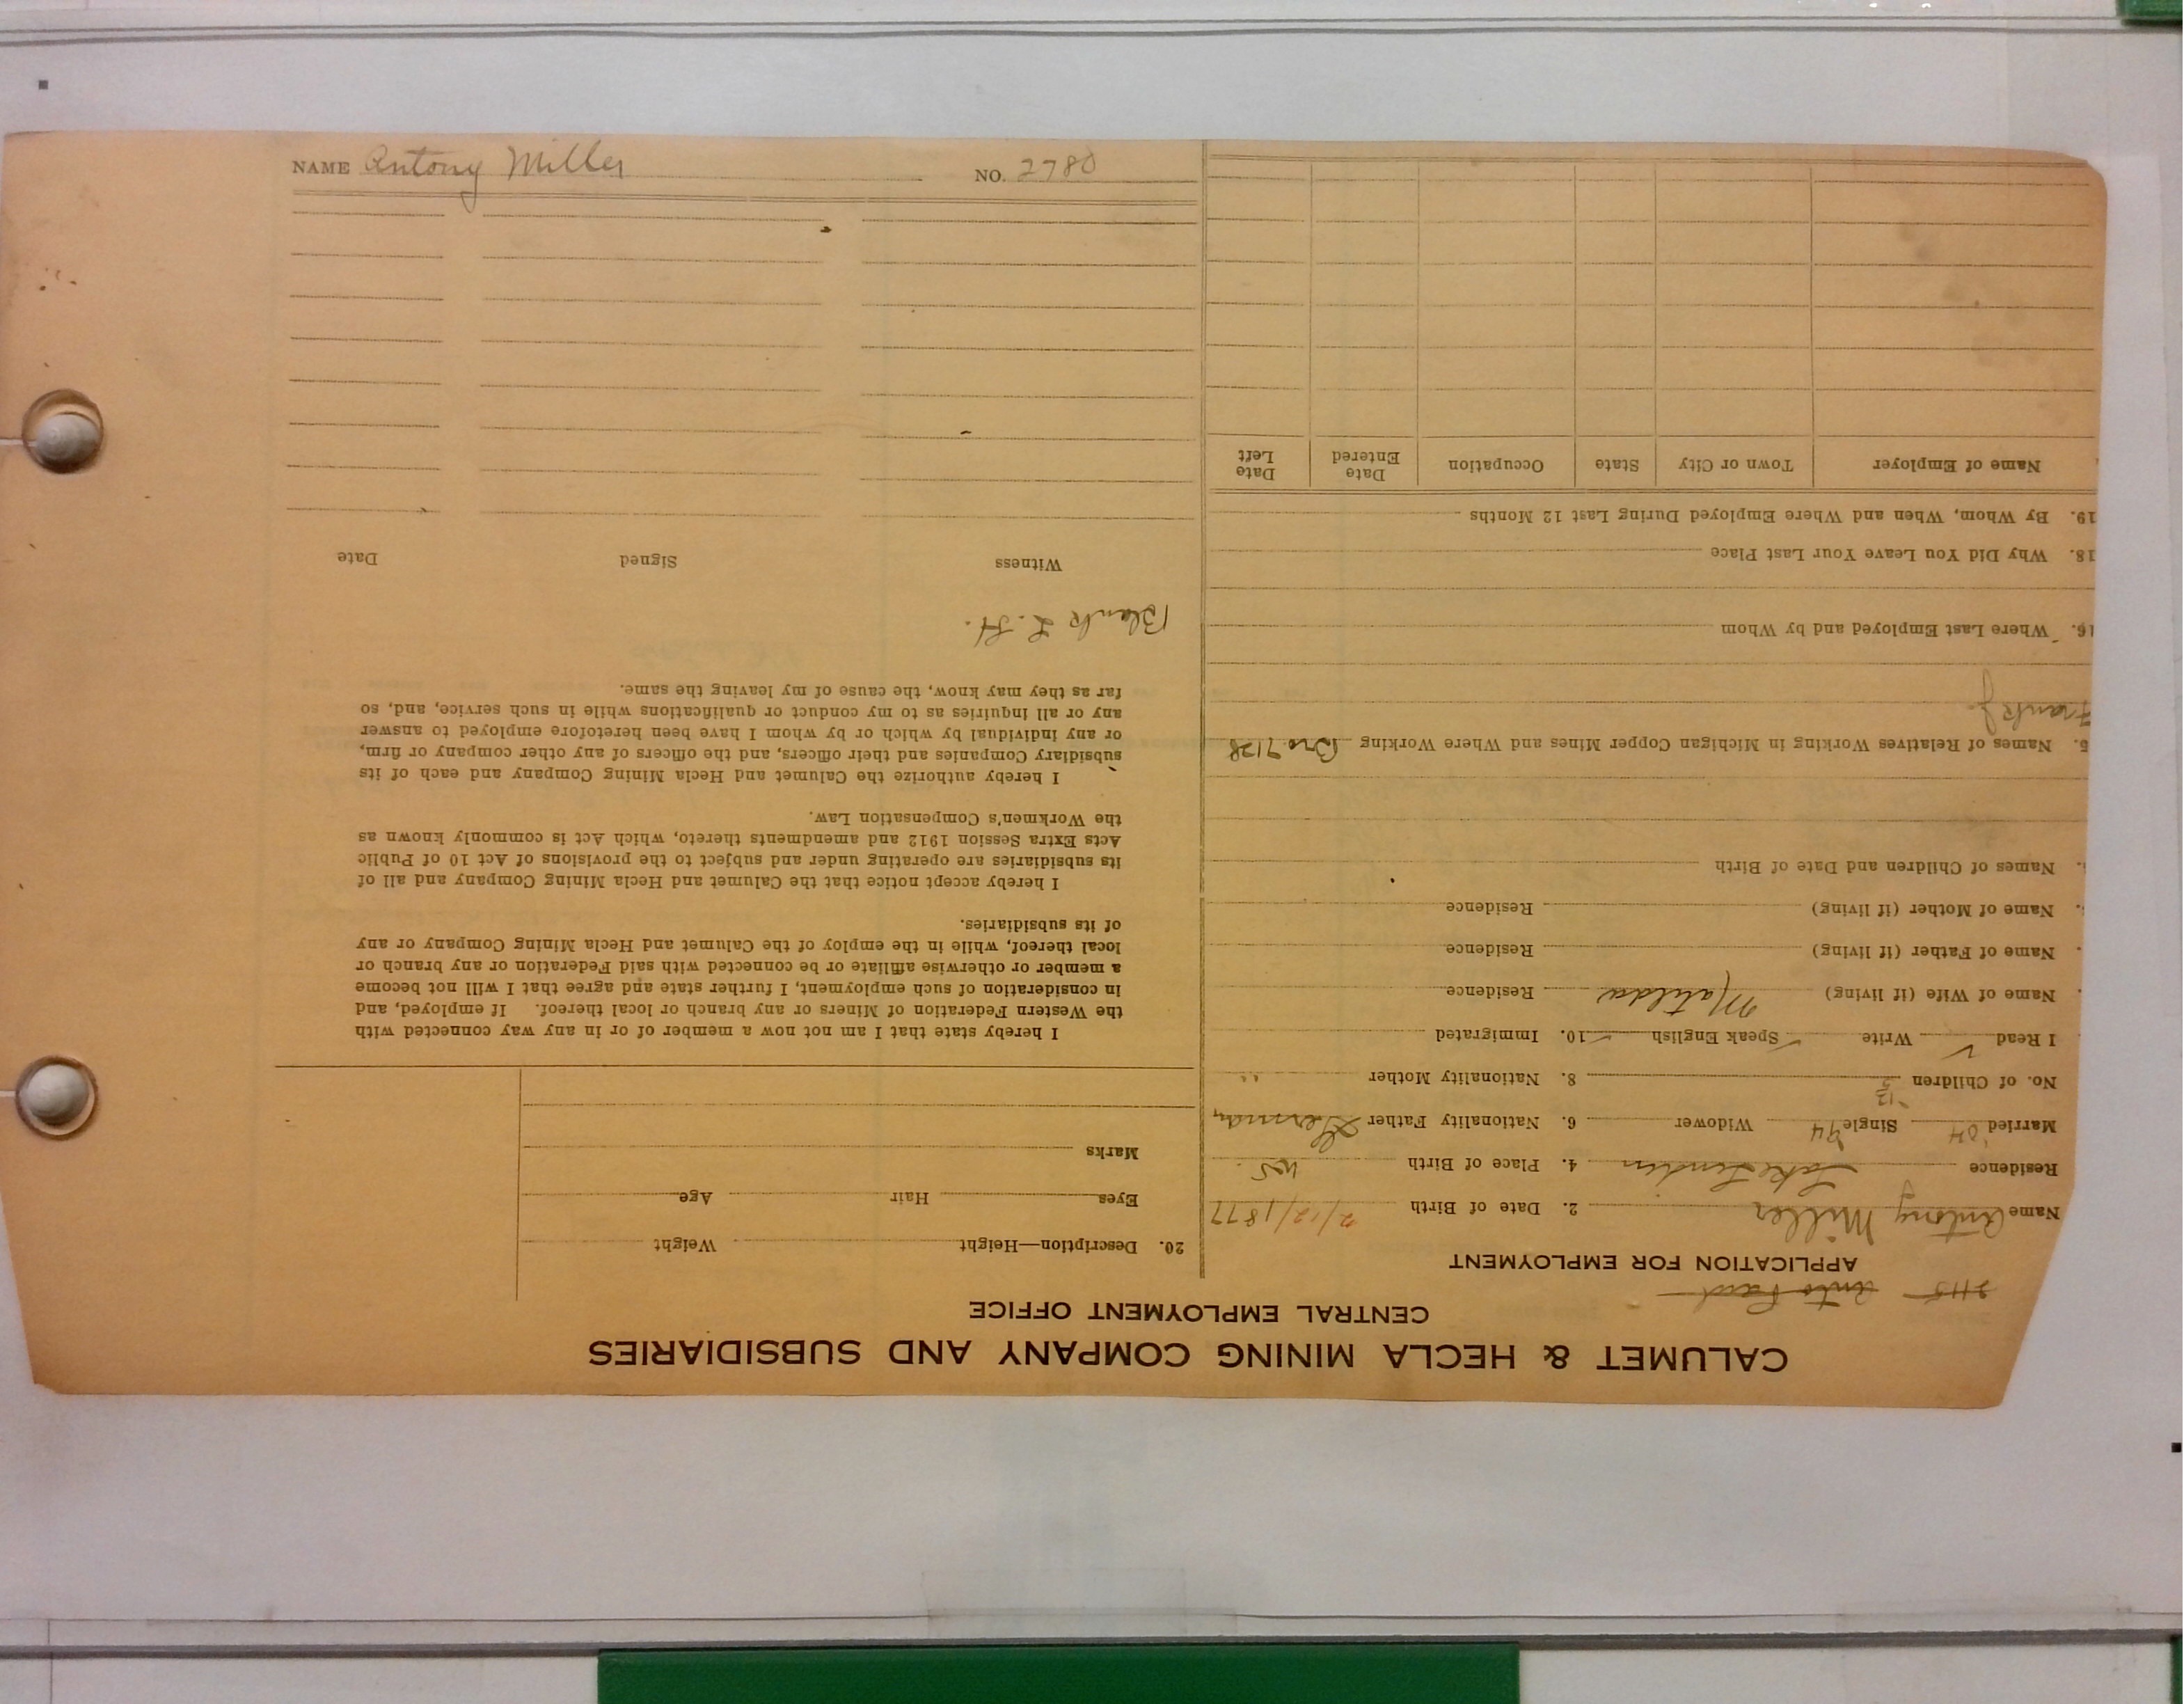 NAME Antony Miller NO. 2780
CALUMET & HECLA MINING COMPANY AND SUBSIDIARIES
CENTRAL EMPLOYMENT OFFICE
2115
APPLICATION FOR EMPLOYMENT
Name Antony Miller 2. Date of Birth 2/12/1877
Residence Lake Linden 4. Place of Birth US.
Married '04 Single '94 Widower 6. Nationality Father German
No. of Children 8. Nationality Mother " "
I Read ✓ Write Speak English ✓ 10. Immigrated
Name of Wife (if living) Matilda Residence
Name of Father (if living) Residence
Name of Mother (if living) Residence
Names of Children and Date of Birth
5. Names of Relatives Working in Michigan Copper Mines and Where Working Bro 7128
Frank J
16. Where Last Employed and by Whom
18. Why Did You Leave Your Last Place
19. By Whom, When and Where Employed During Last 12 Months
Name of Employer Town or City State Occupation Date Entered Date Left
20. Description—Height Weight
Eyes Hair Age
Marks
I hereby state that I am not now a member of or in any way connected with
the Western Federation of Miners or any branch or local thereof. If employed, and
in consideration of such employment, I further state and agree that I will not become
a member or otherwise affiliate or be connected with said Federation or any branch or
local thereof, while in the employ of the Calumet and Hecla Mining Company or any
of its subsidiaries.
I hereby accept notice that the Calumet and Hecla Mining Company and all of
its subsidiaries are operating under and subject to the provisions of Act 10 of Public
Acts Extra Session 1912 and amendments thereto, which Act is commonly known as
the Workmen's Compensation Law.
I hereby authorize the Calumet and Hecla Mining Company and each of its
subsidiary Companies and their officers, and the officers of any other company or firm,
or any individual by which or by whom I have been heretofore employed to answer
any or all inquiries as to my conduct or qualifications while in such service, and, so
far as they may know, the cause of my leaving the same.
Blank L. H.
Witness Signed Date